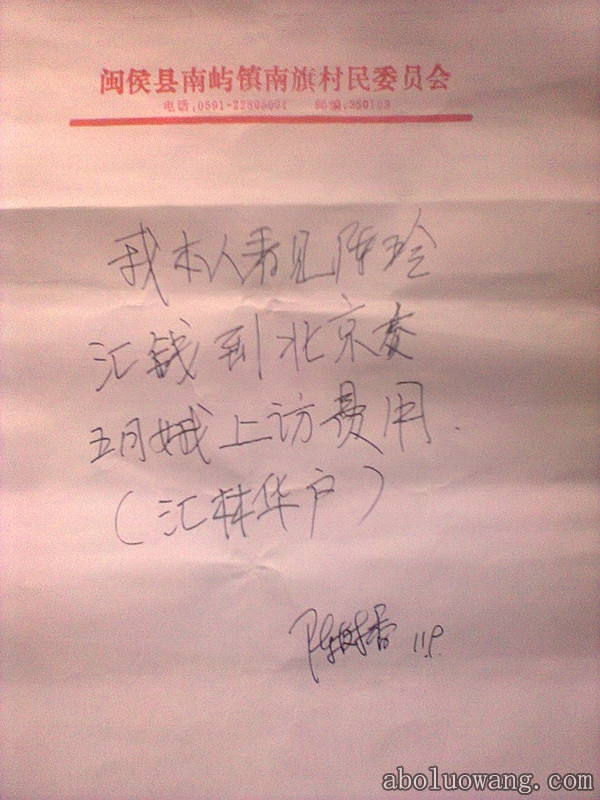 闽侯县南屿镇南旗村民委员会
电话:0591-22808004 邮编:350109
我本人看见陈玲
汇钱到北京交
五月娥上访费用.
(汇林华户)
陈樹香 11.9.
aboluowang.com